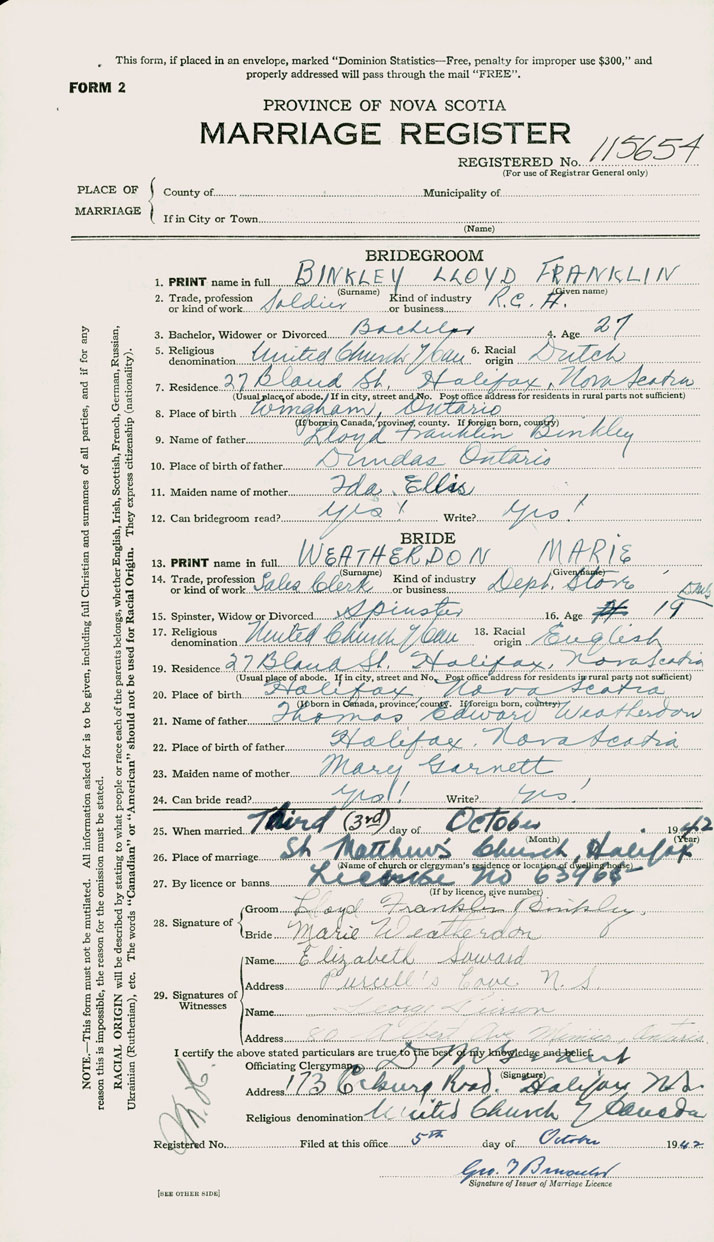 This form, if placed in an envelope, marked “Dominion Statistics—Free, penalty for improper use $300,” and
properly addressed will pass through the mail “FREE”.
FORM 2
PROVINCE OF NOVA SCOTIA
MARRIAGE REGISTER
REGISTERED No. 115654
(For use of Registrar General only)
PLACE OF MARRIAGE
County of
Municipality of
If in City or Town
(Name)
BRIDEGROOM
1. PRINT name in full BINKLEY LLOYD FRANKLIN
(Surname) (Given name)
2. Trade, profession or kind of work Soldier Kind of industry or business R.C.A.
3. Bachelor, Widower or Divorced Bachelor 4. Age 27
5. Religious denomination United Church of Can 6. Racial origin Dutch
7. Residence 27 Bland St. Halifax, Nova Scotia
(Usual place of abode. If in city, street and No. Post office address for residents in rural parts not sufficient)
8. Place of birth Wingham, Ontario
(If born in Canada, province, county. If foreign born, country)
9. Name of father Lloyd Franklin Binkley
10. Place of birth of father Dundas Ontario
11. Maiden name of mother Ida Ellis
12. Can bridegroom read? Yes! Write? Yes!
BRIDE
13. PRINT name in full WEATHERDON MARIE
(Surname) (Given name)
14. Trade, profession or kind of work Sales Clerk Kind of industry or business Dept. Store
15. Spinster, Widow or Divorced Spinster 16. Age 19
17. Religious denomination United Church of Can 18. Racial origin English
19. Residence 27 Bland St. Halifax, Nova Scotia
(Usual place of abode. If in city, street and No. Post office address for residents in rural parts not sufficient)
20. Place of birth Halifax, Nova Scotia
(If born in Canada, province, county. If foreign born, country)
21. Name of father Thomas Edward Weatherdon
22. Place of birth of father Halifax, Nova Scotia
23. Maiden name of mother Mary Garnett
24. Can bride read? Yes! Write? Yes!
25. When married Third (3rd) day of October 1942
(Month) (Year)
26. Place of marriage St. Matthew's Church, Halifax
(Name of church or clergyman's residence or location of dwelling house)
27. By licence or banns License No 63968
(If by licence, give number)
28. Signature of
Groom Lloyd Franklin Binkley
Bride Marie Weatherdon
29. Signatures of Witnesses
Name Elizabeth Soward
Address Purcell's Cove N.S.
Name George
Address Ontario
I certify the above stated particulars are true to the best of my knowledge and belief.
Officiating Clergyman
(Signature)
Address 173 Coburg Road. Halifax N.S.
Religious denomination United Church of Canada
Registered No. Filed at this office 5th day of October 1942
Geo.
Signature of Issuer of Marriage Licence
[SEE OTHER SIDE]
NOTE.—This form must not be mutilated. All information asked for is to be given, including full Christian and surnames of all parties, and if for any
reason this is impossible, the reason for the omission must be stated.
RACIAL ORIGIN will be described by stating to what people or race each of the parents belongs, whether English, Irish, Scottish, French, German, Russian,
Ukrainian (Ruthenian), etc. The words “Canadian” or “American” should not be used for Racial Origin. They express citizenship (nationality).